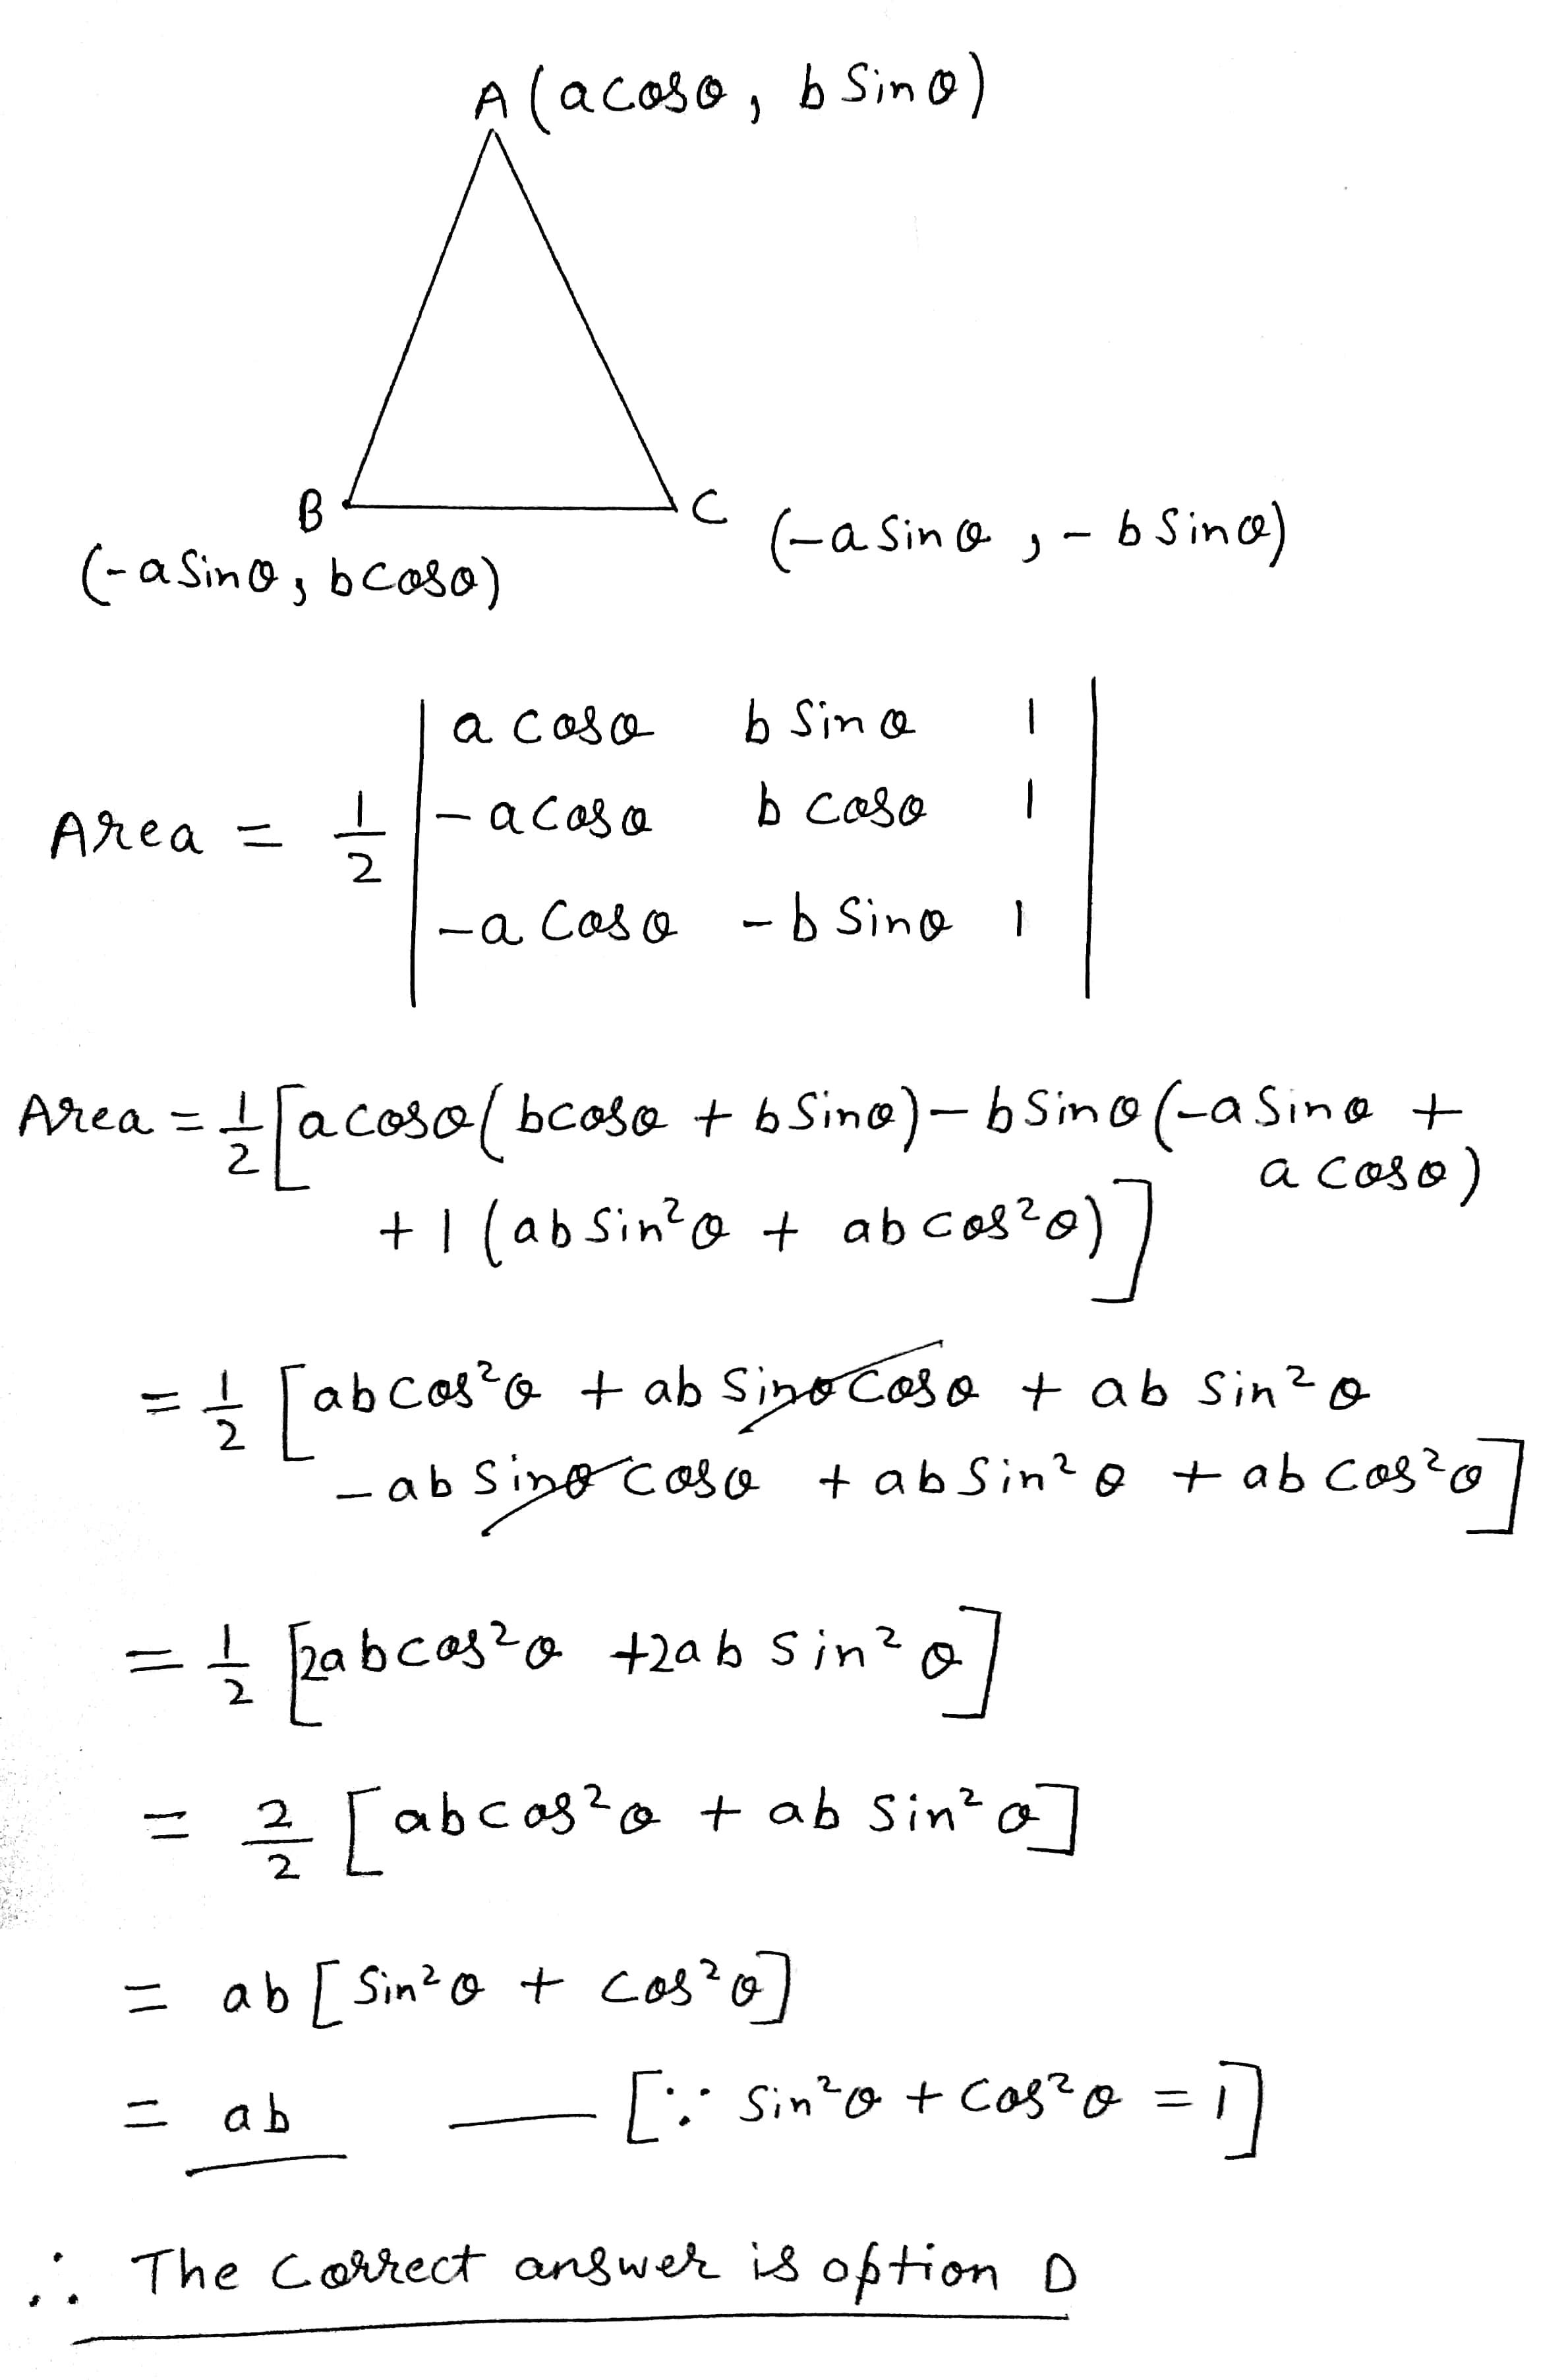 A (a cosθ, b Sinθ)
B
C
(-a Sinθ, b cosθ)
(-a Sinθ, - b Sinθ)
a cosθ b Sinθ 1
Area = 1/2 | -a cosθ b cosθ 1 |
-a Cosθ -b Sinθ 1
Area = 1/2 [a cosθ (b cosθ + b Sinθ) - b Sinθ (-a Sinθ +
a cosθ)
+ 1 (ab Sin²θ + ab cos²θ)]
= 1/2 [ab cos²θ + ab Sinθ Cosθ + ab Sin²θ
- ab Sinθ Cosθ + ab Sin²θ + ab Cos²θ]
= 1/2 [2ab cos²θ +2ab Sin²θ]
= 2/2 [ab cos²θ + ab Sin²θ]
= ab [Sin²θ + Cos²θ]
= ab — [∵ Sin²θ + Cos²θ = 1]
∴ The Correct answer is option D